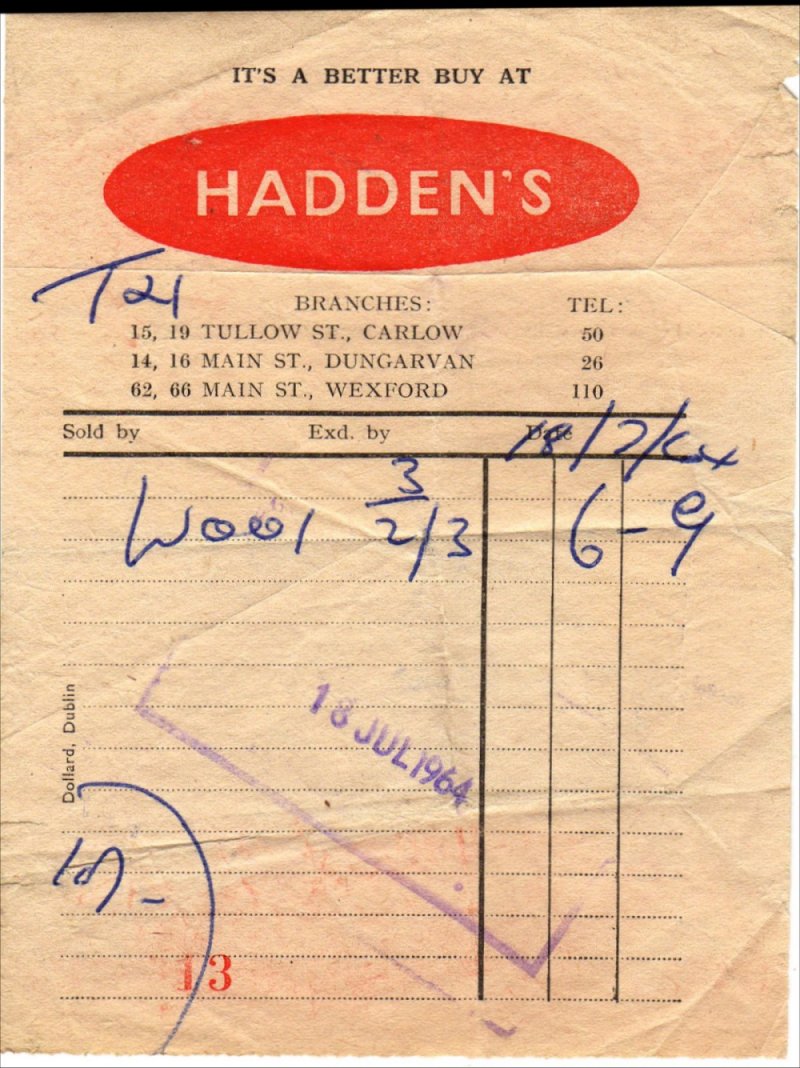 IT'S A BETTER BUY AT
HADDEN'S
BRANCHES: TEL:
15, 19 TULLOW ST., CARLOW 50
14, 16 MAIN ST., DUNGARVAN 26
62, 66 MAIN ST., WEXFORD 110
Sold by Exd. by Date
18/7/64
Wool 3 2/3 6-9
18 JUL 1964
Dollard, Dublin
13